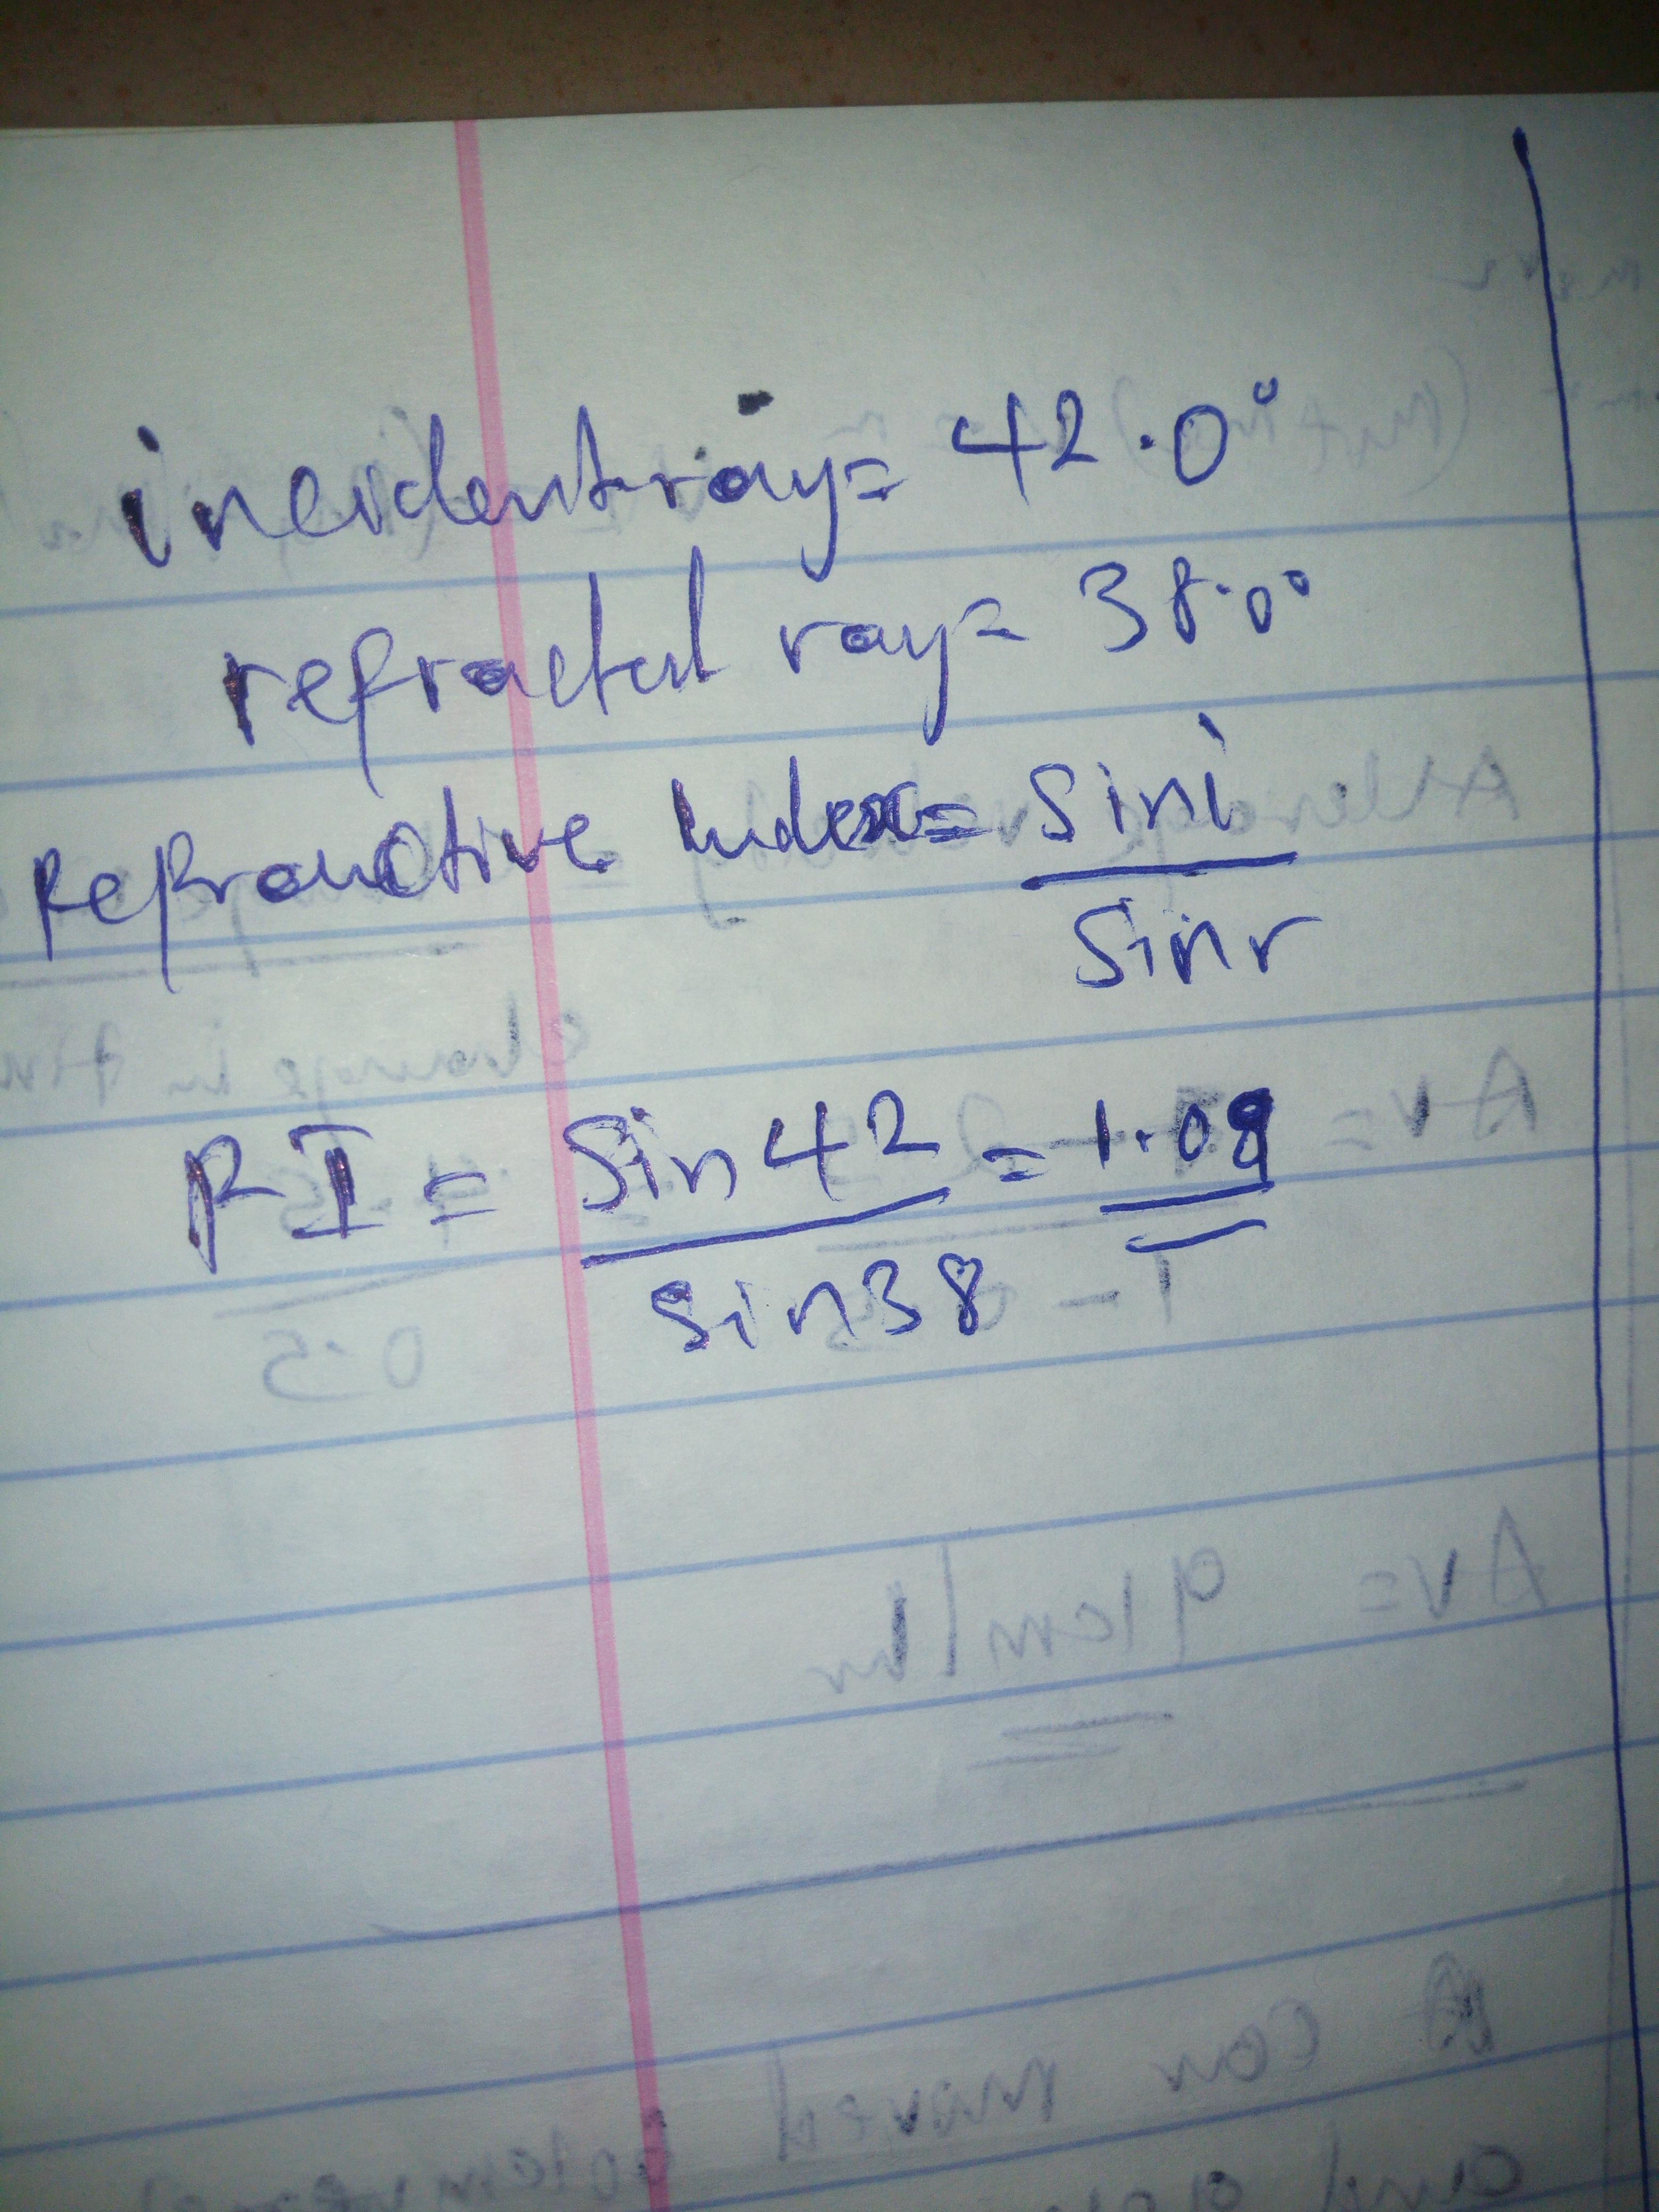 incident ray = 42.0°
refracted ray = 38.0°
Refractive Index = sini
sinr
RI = Sin42 = 1.09
sin38